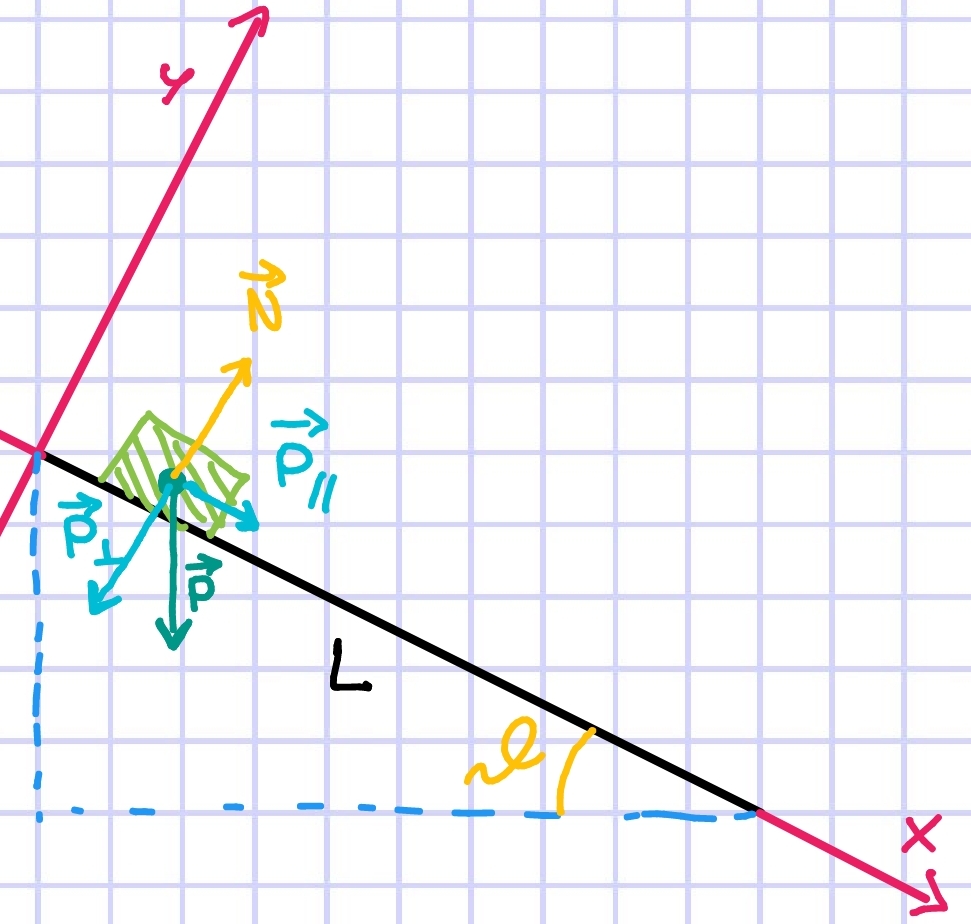 y
N⃗
P⃗∥
P⃗⊥
P⃗
L
x